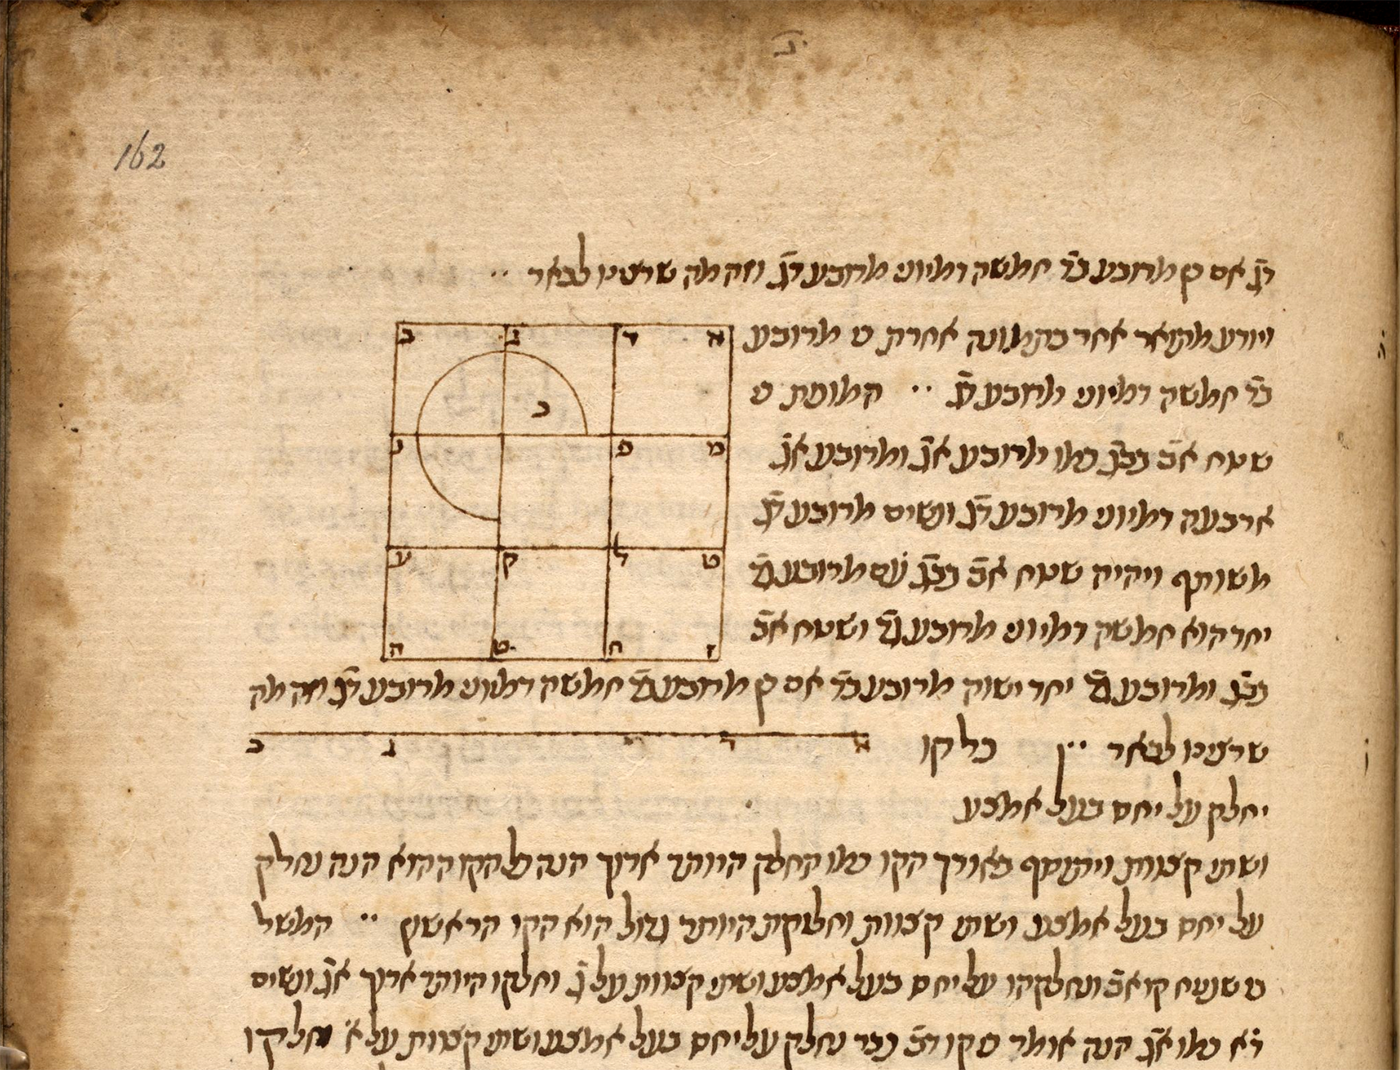 162
דג אם כן מרובע בד חמשה דמיוני מרובע דג וזה מה שרצינו לבאר
ויודע אחר בתמונה אחרת מרובע
בד חמשה דמיוני מרובע דג ·· המופת
שטח אב בבג כמו מרובע אג ומרובע אג
ארבעה דמיוני מרובע דג ונשים מרובע דג
משותף ויהיה שטח אב בבג עם מרובע דג
יחד הוא חמשה דמיוני מרובע דג ושטח אב
בבג ומרובע דג יחד ישוה מרובע בד אם כן מרובע חמשה דמיוני מרובע דג וזה מה
שרצינו לבאר ·· כל קו
יחלק על יחס בעל אמצע
ושתי קצוות ויתוסף באורך הקו כמו החלק היותר ארוך הנה כל הקו ההוא הנה נחלק
על יחס בעל אמצע ושתי קצוות וחלוקת היותר גדול הוא הקו הראשון ·· המשל
שנניח קו אב ונחלקהו על יחס בעל אמצע ושתי קצוות על ג וחלקו היותר ארוך אג ונשים
דא כמו אג הנה אומר שקו דב כבר נחלק על יחס בעל אמצע ושתי קצוות על א חלקו
א ד ג ב
כ
מ פ נ
ט ל ק ע
ז ח ט ה
א ד ג ב